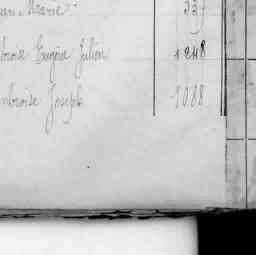 Marie 337
broise Eugène Julien 1248
mbroise Joseph 1088